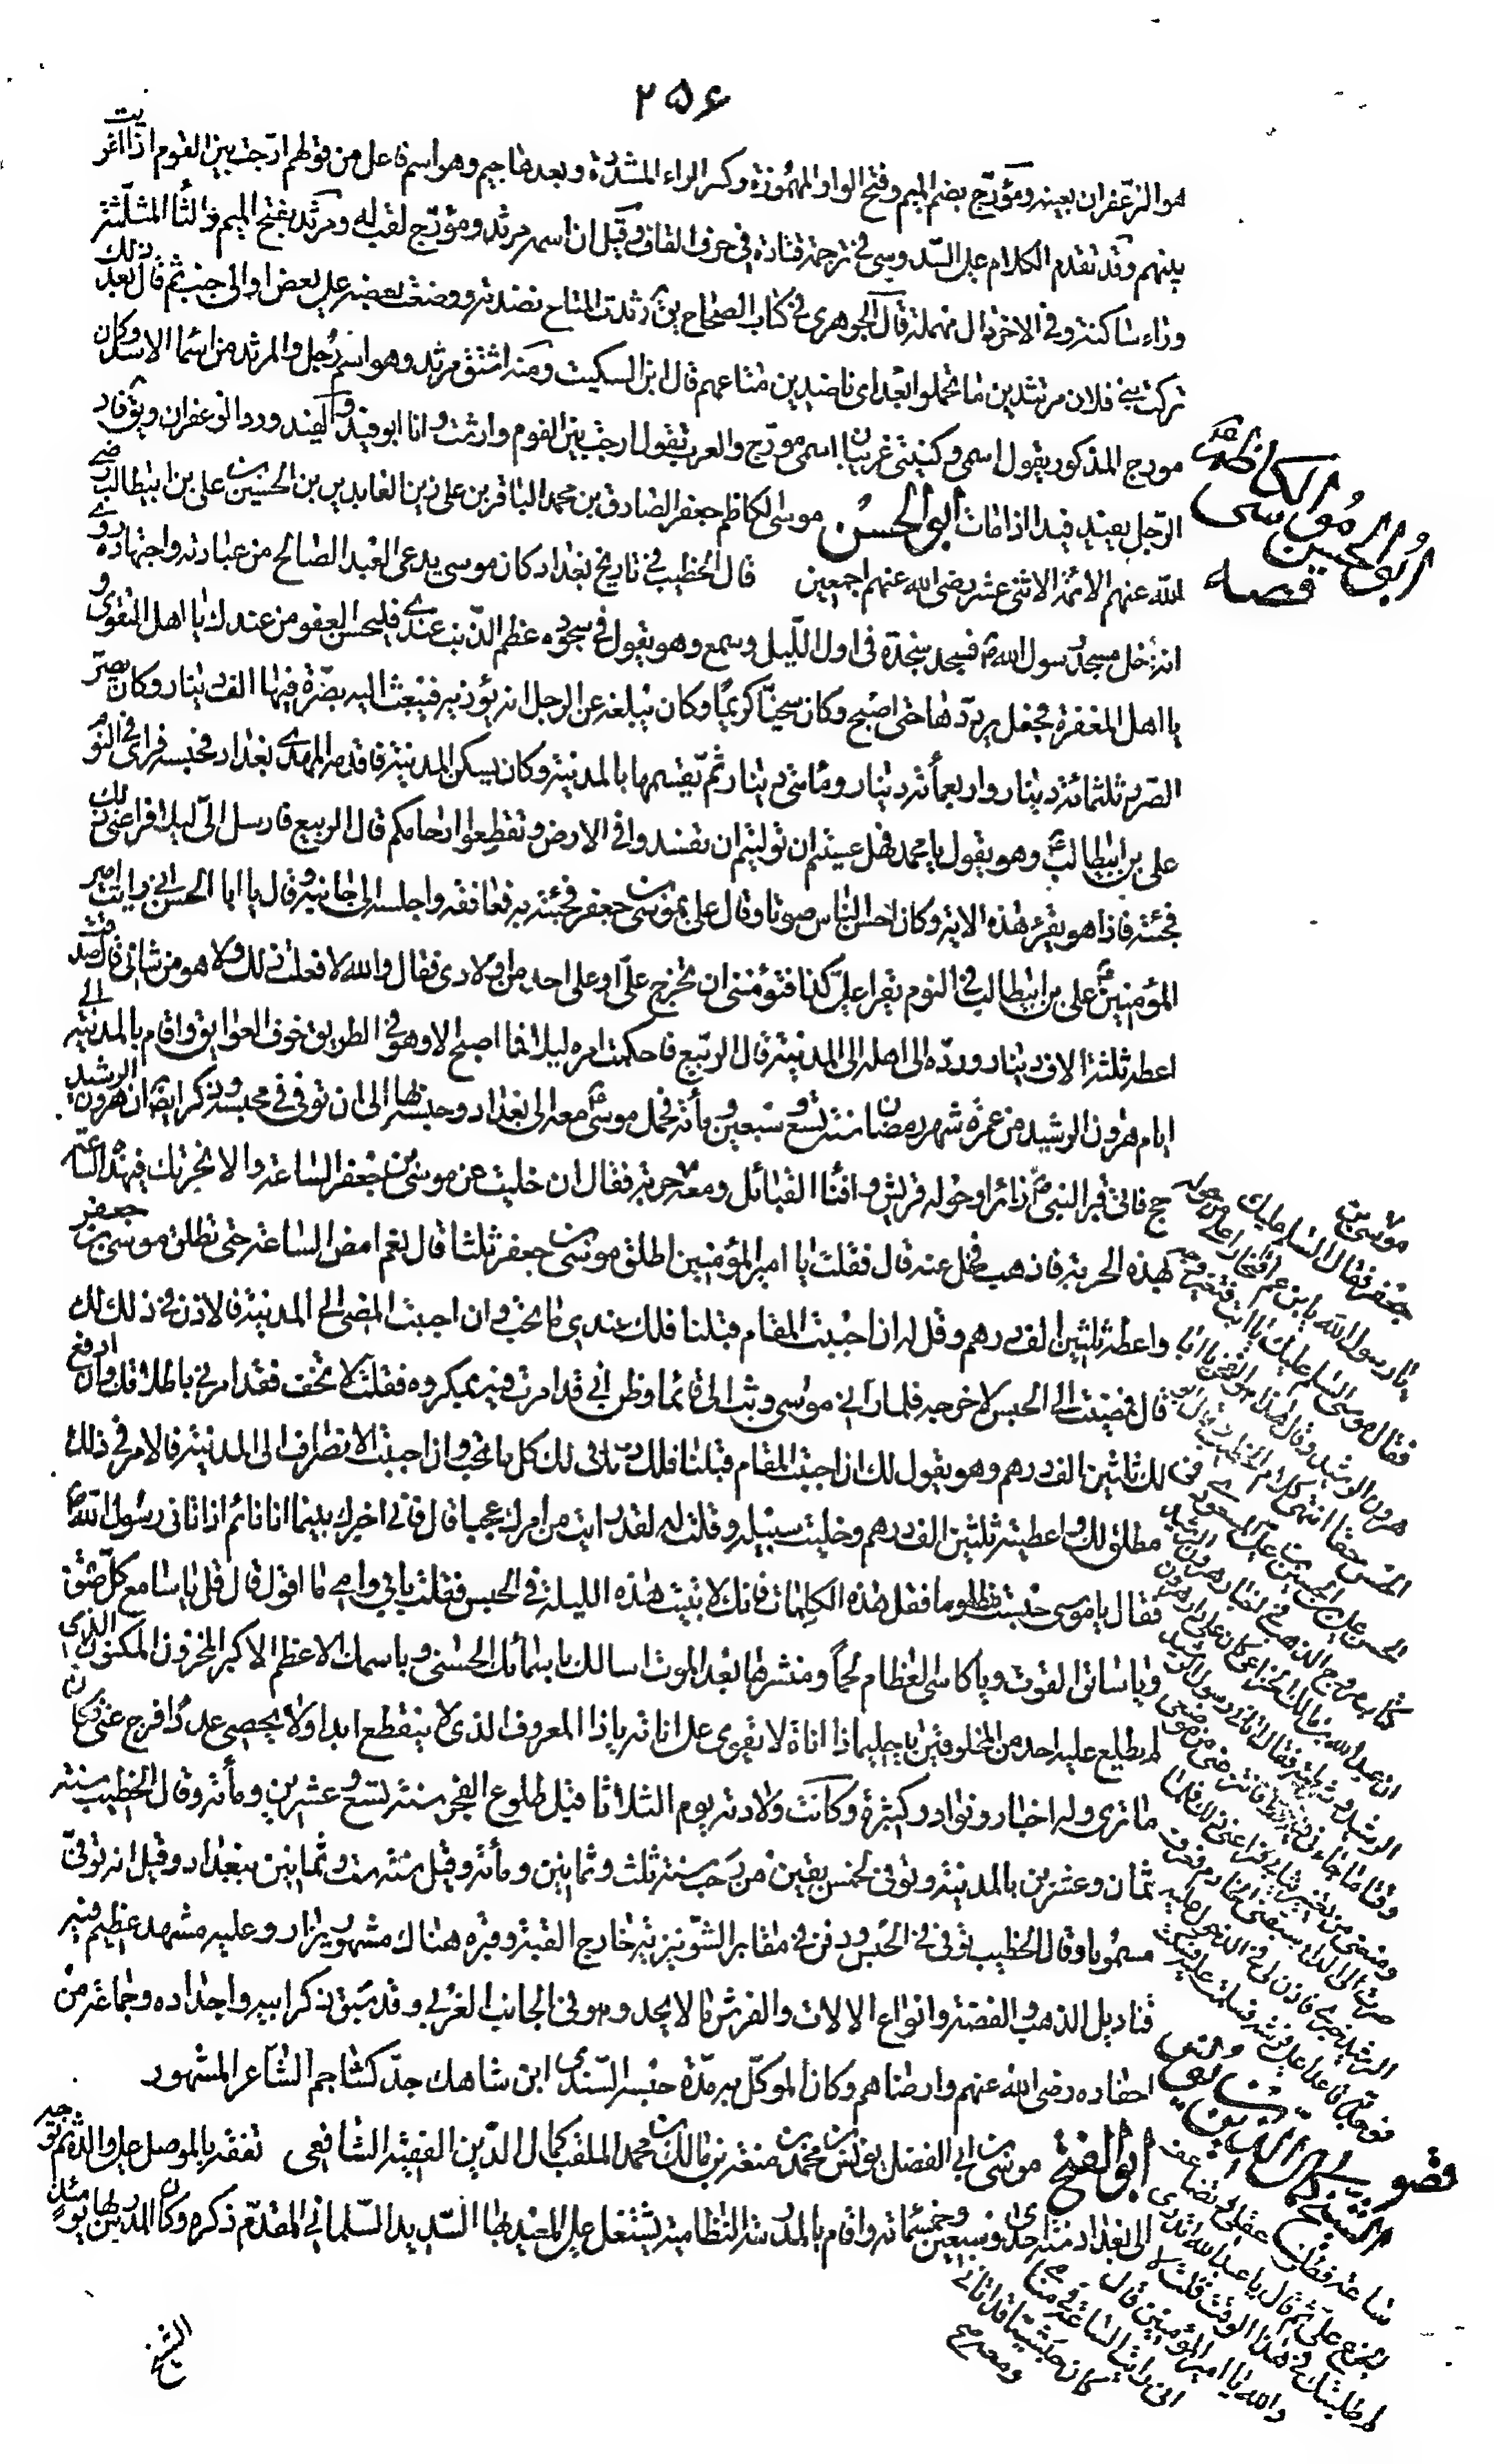 ۲۵۶
هو الزعفران بعينه ومؤرج بضم الميم وفتح الواو المهموزة وكسر الراء المشددة وبعدها جيم وهو اسم فاعل من قولهم ارجت بين القوم اذا اغريت
بينهم وقد تقدم الكلام على السدوسي في ترجمة قتادة في حرف القاف وقيل ان اسمه مرثد ومؤرج لقب له ومرثد بفتح الميم والثاء المثلثة
وراء ساكنة وفي الاخر دال مهملة قال الجوهري في كتاب الصحاح رثدت المتاع نضدته ووضعت بعضه على بعض او الى جنب ثم قال بعد ذلك
تركت بني فلان مرتثدين ما تحملوا بعد اى ناضدين متاعهم قال ابن السكيت ومنه اشتق مرثد وهو اسم رجل والمرثد من اسما الاسد وكان
مورج المذكور يقول اسمى وكنيتى غريبان اسمى مورج والعرب تقول ارجت بين القوم وارشت وانا ابو فيد والفيد ورد الزعفران ويق فاد
الرجل يفيد فيدا اذا مات ابو الحسن موسى الكاظم جعفر الصادق بن محمد الباقر بن على زين العابدين بن الحسين بن على بن ابيطالب رضى
الله عنهم الائمة الاثنى عشر رضى الله عنهم اجمعين قال الخطيب في تاريخ بغداد كان موسى يدعى العبد الصالح من عبادته واجتهاده روى
انه دخل مسجد رسول الله ص فسجد سجدة في اول الليل وسمع وهو يقول في سجوده عظم الذنب عندى فليحسن العفو من عندك يا اهل التقوى و
يا اهل المغفرة فجعل يرددها حتى اصبح وكان سخيا كريما وكان يبلغه عن الرجل انه يؤذيه فيبعث اليه بصرة فيها الف دينار وكان يصر
الصرر ثلثمائة دينار واربعمأئة دينار ومأتى دينار ثم يقسمها بالمدينة وكان يسكن المدينة فاقدمه المهدى بغداد فحبسه فراى في النوم
على بن ابيطالب ع وهو يقول يا محمد فهل عسيتم ان توليتم ان تفسدوا في الارض وتقطعوا ارحامكم قال الربيع فارسل الى ليلا فراعنى ذلك
فجئته فاذا هو يقرء هذه الاية وكان احسن الناس صوتا وقال على بموسى بن جعفر فجئته به فعانقه واجلسه الى جانبه وقال يا ابا الحسن انى رايت امير
المؤمنين على بن ابيطالب في النوم يقرا على كذا فتؤمننى ان تخرج على او على احد من اولادى فقال والله لا فعلت ذلك ولا هو من شانى قال صدقت
اعطه ثلثة الاف دينار ورده الى اهله الى المدينة قال الربيع فاحكمت امره ليلا فما اصبح الا وهو في الطريق خوف العوايق واقام بالمدينة الى
ايام هرون الرشيد من عمرة شهر رمضان سنة تسع وسبعين ومأئة فحمل موسى معه الى بغداد وحبسه بها الى ان توفى في محبسه وذكر ايضا ان هرون الرشيد
حج فاتى قبر النبى ص زائرا وحوله قريش وافنأ القبائل ومعه
حربة فقال ان خليت عن موسى بن جعفر الساعة والا نحرتك في هذه الساعة
بهذه الحربة فاذهب فخل عنه قال فقلت يا امير المؤمنين اطلق موسى بن جعفر ثلثا قال نعم امض الساعة حتى تطلق موسى بن جعفر
واعطه ثلثين الف درهم وقل له ان احببت المقام قبلنا فلك عندى ما تحب وان احببت المضى الى المدينة فالاذن في ذلك لك
قال فمضيت الى الحبس لاخرجه فلما رآنى موسى وثب الى قائما وظن انى قد امرت فيه بمكروه فقلت لا تخف فقد امرنى باطلاقك وان ادفع
لك ثلثين الف درهم وهو يقول لك ان احببت المقام قبلنا فلك كل ما تحب وان احببت الانصراف الى المدينة فالامر في ذلك
مطلق لك واعطيته ثلثين الف درهم وخليت سبيله وقلت له لقد رايت من امرك عجبا قال فانى اخبرك بينما انا نائم اذ اتانى رسول الله ص
فقال يا موسى حبست مظلوما فقل هذه الكلمات فانك لا تبيت هذه الليلة في الحبس فقلت بابى وامى ما اقول قال قل يا سامع كل صوت
ويا سابق الفوت ويا كاسى العظام لحماً ومنشرها بعد الموت اسالك باسمائك الحسنى وباسمك الاعظم الاكبر المخزون المكنون الذى
لم يطلع عليه احد من المخلوقين يا حليما ذا اناة لا يقوى على اناته يا ذا المعروف الذى لا ينقطع ابدا ولا يحصى عددا فرج عنى فكان
ما ترى وله اخبار ونوادر كثيرة وكانت ولادته يوم الثلاثا قبل طلوع الفجر سنة تسع وعشرين ومأئة وقال الخطيب سنة
ثمان وعشرين بالمدينة وتوفى لخمس بقين من رجب سنة ثلث وثمانين ومأئة وقيل سنة ست وثمانين ببغداد وقيل انه توفى
مسموما وقال الخطيب توفى في الحبس ودفن في مقابر الشونيزية خارج القبة وقبره هناك مشهور يزار وعليه مشهد عظيم فيه
قناديل الذهب والفضة وانواع الالات والفرش ما لا يحد وهو في الجانب الغربى وقد سبق ذكر ابيه واجداده وجماعة من
احفاده رضى الله عنهم وارضاهم وكان الموكل به مدة حبسه السندى ابن شاهك جد كشاجم الشاعر المشهور
ابو الفتح موسى بن ابى الفضل يونس بن محمد بن منعة بن مالك بن محمد الملقب كمال الدين الفقيه الشافعى تفقه بالموصل على والده ثم توجه
الى بغداد سنة احدى وسبعين وخمسمائة واقام بالمدرسة النظامية يشتغل على المعيد بها السديد السلماسى المقدم ذكره وكان المدرس بها يومئذ
الشيخ
ابو الحسين موسى الكاظم ع
قصه
موسى بن
جعفر فقال السلام عليك
يا رسول الله يا ابن عم افتخارا على من حوله
فقال موسى السلم عليك يا ابت فتغير وجه
هرون الرشيد وقال هذا هو الفخر يا ابا
الحسن حقا انتهى كلام الخطيب وقال ابو
الحسن على بن الحسين بن على المسعودى في
كتاب مروج الذهب في اخبار هرون الرشيد
ان عبد الله بن مالك الخزاعى كان على دار هرون
الرشيد وشرطته فقال اتانى رسول الرشيد
وقتا ما جاءنى فيه قط فانتزعنى من موضعى
ومنعنى من تغيير ثيابى فراعنى ذلك فلما
صرت الى الدار سبقنى الخادم فعرف
الرشيد خبرى فاذن لى في الدخول عليه
فوجدته قاعدا على فرشه فسلمت عليه فسكت
الشيخ كمال الدين بن يونس
ساعة فطار عقلى وتضاعف
الجزع على ثم قال يا عبد الله اتدرى
لم طلبتك في هذا الوقت قلت لا
والله يا امير المؤمنين قال
انى رايت الساعة في منامى
كان حبشيا قد اتانى
ومعه